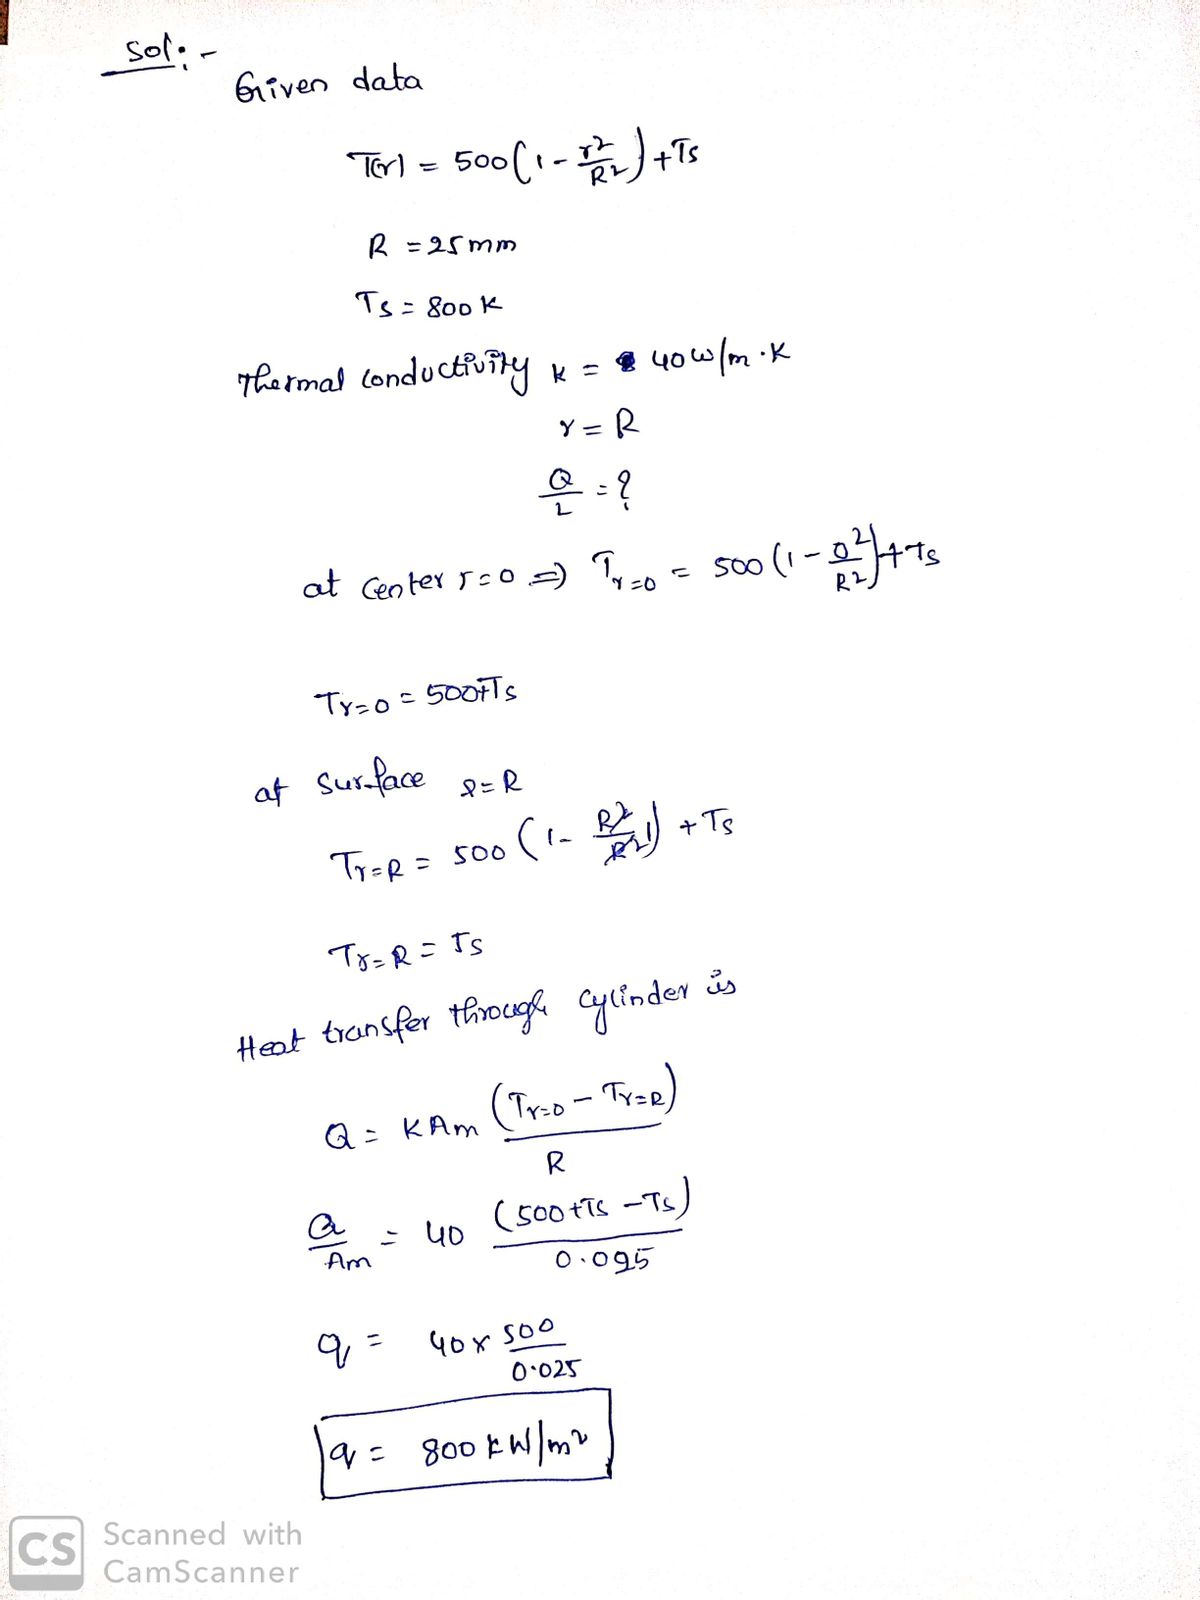 Sol:-
Given data
T(r) = 500(1 - r²/R²) + Ts
R = 25mm
Ts = 800 K
Thermal conductivity k = 40 W/m·K
r = R
Q/L = ?
at center r=0 ⇒ Tr=0 = 500(1 - 0²/R²) + Ts
Tr=0 = 500+Ts
at surface r=R
Tr=R = 500 (1 - R²/R²) + Ts
Tr=R = Ts
Heat transfer through cylinder is
Q = KAm (Tr=0 - Tr=R)/R
Q/Am = 40 (500+Ts - Ts)/0.025
q = 40 x 500/0.025
q = 800 kW/m²
CS Scanned with
CamScanner